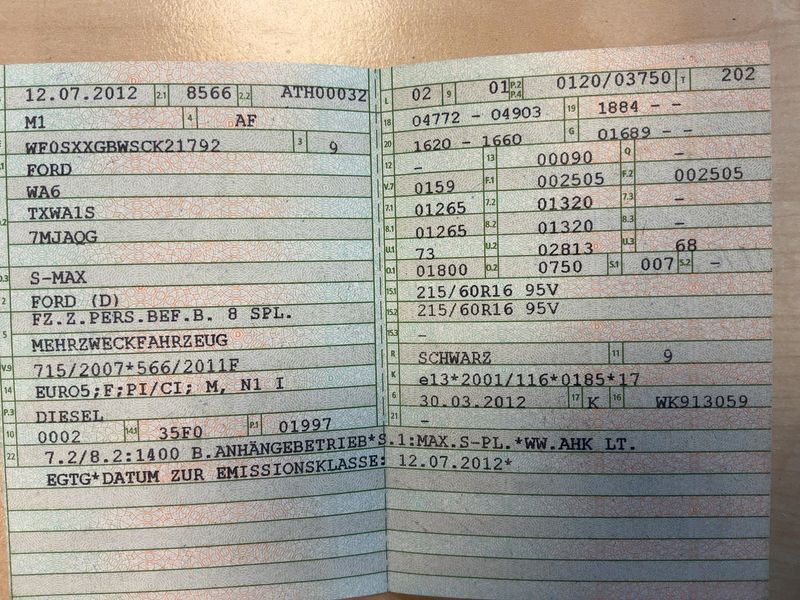 12.07.2012 2.1 8566 2.2 ATH00032
M1 4 AF
WF0SXXGBWSCK21792 3 9
FORD
WA6
TXWA1S
7MJAQG
D.3 S-MAX
2 FORD (D)
FZ.Z.PERS.BEF.B. 8 SPL.
5 MEHRZWECKFAHRZEUG
V.9 715/2007*566/2011F
14 EURO5;F;PI/CI; M, N1 I
P.3 DIESEL
10 0002 14.1 35F0 P.1 01997
L 02 9 01 P.2 P.4 0120/03750 T 202
18 04772 - 04903 19 1884 - -
20 1620 - 1660 G 01689 - -
12 - 13 00090 Q -
V.7 0159 F.1 002505 F.2 002505
7.1 01265 7.2 01320 7.3 -
8.1 01265 8.2 01320 8.3 -
U.1 73 U.2 02813 U.3 68
O.1 01800 O.2 0750 S.1 007 S.2 -
15.1 215/60R16 95V
15.2 215/60R16 95V
15.3 -
R SCHWARZ 11 9
K e13*2001/116*0185*17
6 30.03.2012 17 K 16 WK913059
21 -
22 7.2/8.2:1400 B.ANHÄNGEBETRIEB*S.1:MAX.S-PL.*WW.AHK LT.
EGTG*DATUM ZUR EMISSIONSKLASSE: 12.07.2012*